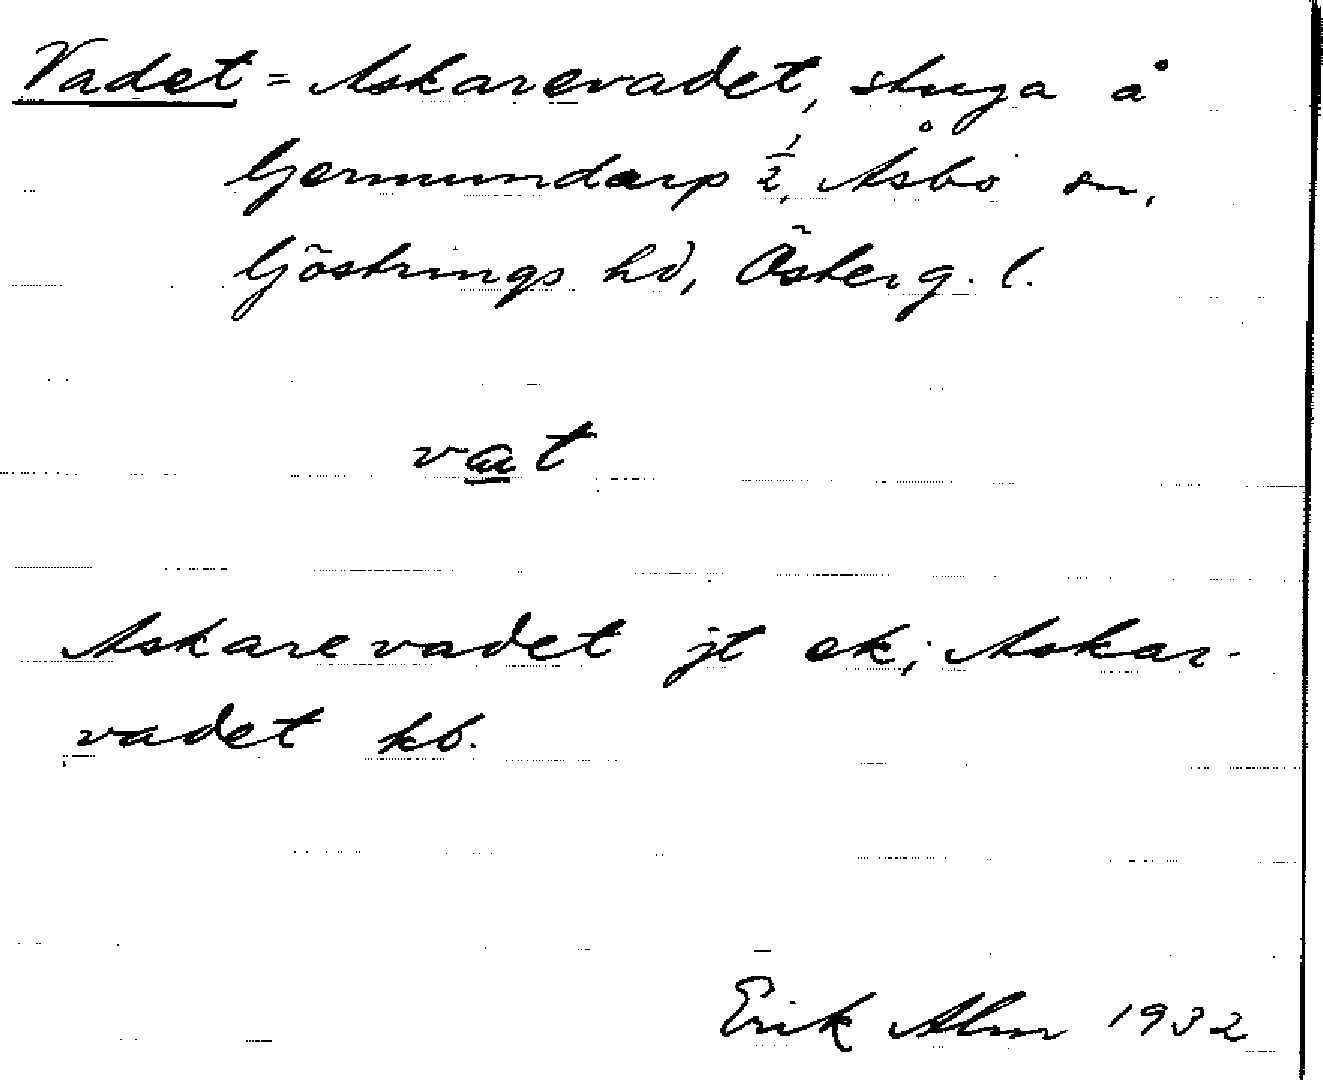 Vadet = Askarevadet, stuga å
Germundarp 1/2, Åsbo sn,
Göstrings hd, Österg. l.
vat
Askarevadet jt ek; Askar-
vadet kb.
Erik Alm 1932